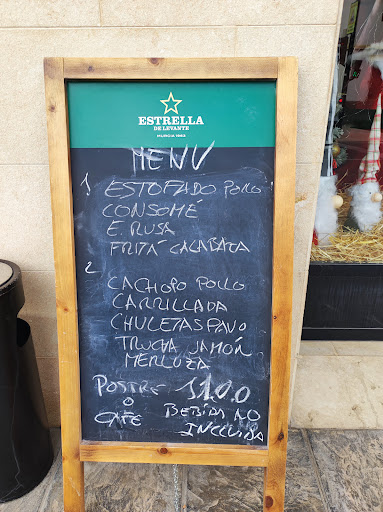 ESTRELLA
DE LEVANTE
MURCIA 1963
MENU
1 ESTOFADO POLLO
CONSOMÉ
E. RUSA
FRITÁ CALABAZA
2
CACHOPO POLLO
CARRILLADA
CHULETAS PAVO
TRUCHA JAMÓN
MERLUZA
POSTRE 11.00
O BEBIDA NO
CAFE INCLUIDA